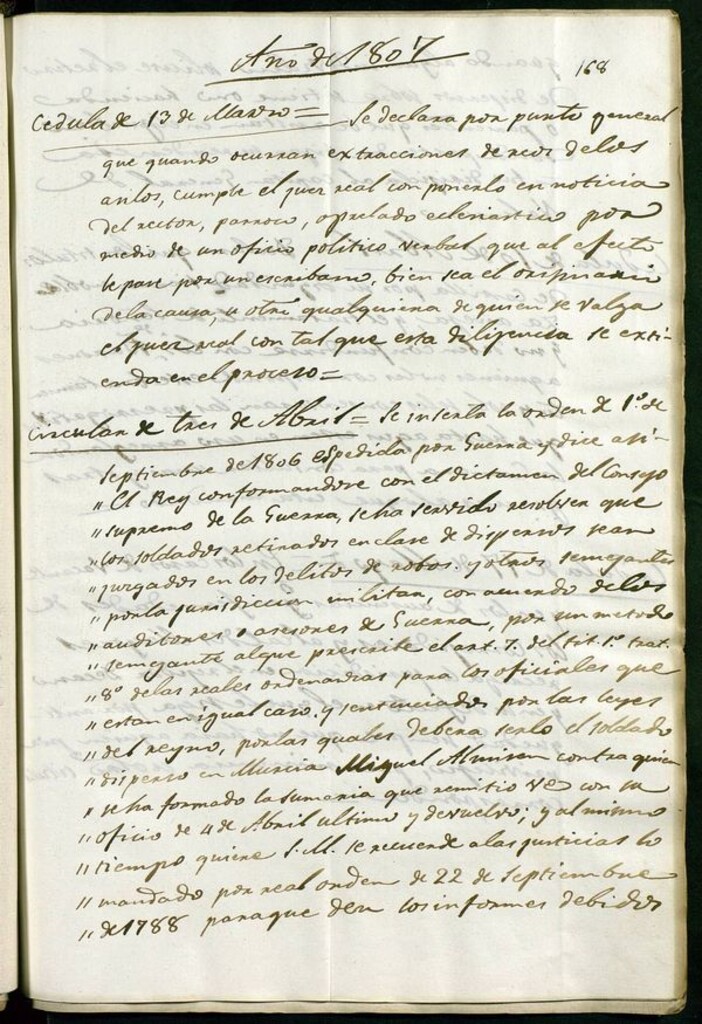 Año de 1807
168
Cedula de 13 de Marzo = Se declara por punto general
que quando ocurran extracciones de reos de los
asilos, cumple el juez real con ponerlo en noticia
del rector, parroco, o prelado eclesiastico por
medio de un oficio politico verbal que al efecto
le pase por un escribano, bien sea el originario
de la causa, u otro qualquiera de quien se valga
el juez real con tal que esta diligencia se exti-
enda en el proceso =
Circular de tres de Abril = Se inserta la orden de 1º de
Septiembre de 1806 espedida por Guerra y dice asi -
" El Rey conformandose con el dictamen del Consejo
" supremo de la Guerra, se ha servido resolver que
" los soldados retirados en clase de dispersos sean
" juzgados en los delitos de robos y otros semejantes
" por la jurisdiccion militar, con acuerdo de los
" auditores o asesores de Guerra, por un metodo
" semejante al que prescribe el art. 7. del tit. 1º trat.
" 8º de las reales ordenanzas para los oficiales que
" estan en igual caso, y sentenciados por las leyes
" del reyno, por las quales debera serlo el soldado
" disperso en Murcia Miguel Almisen contra quien
" se ha formado la sumaria que remitio VE con su
" oficio de 4 de Abril ultimo y devuelvo; y al mismo
" tiempo quiere S.M. se recuerde a las justicias lo
" mandado por real orden de 22 de Septiembre
" de 1788 para que den los informes debidos